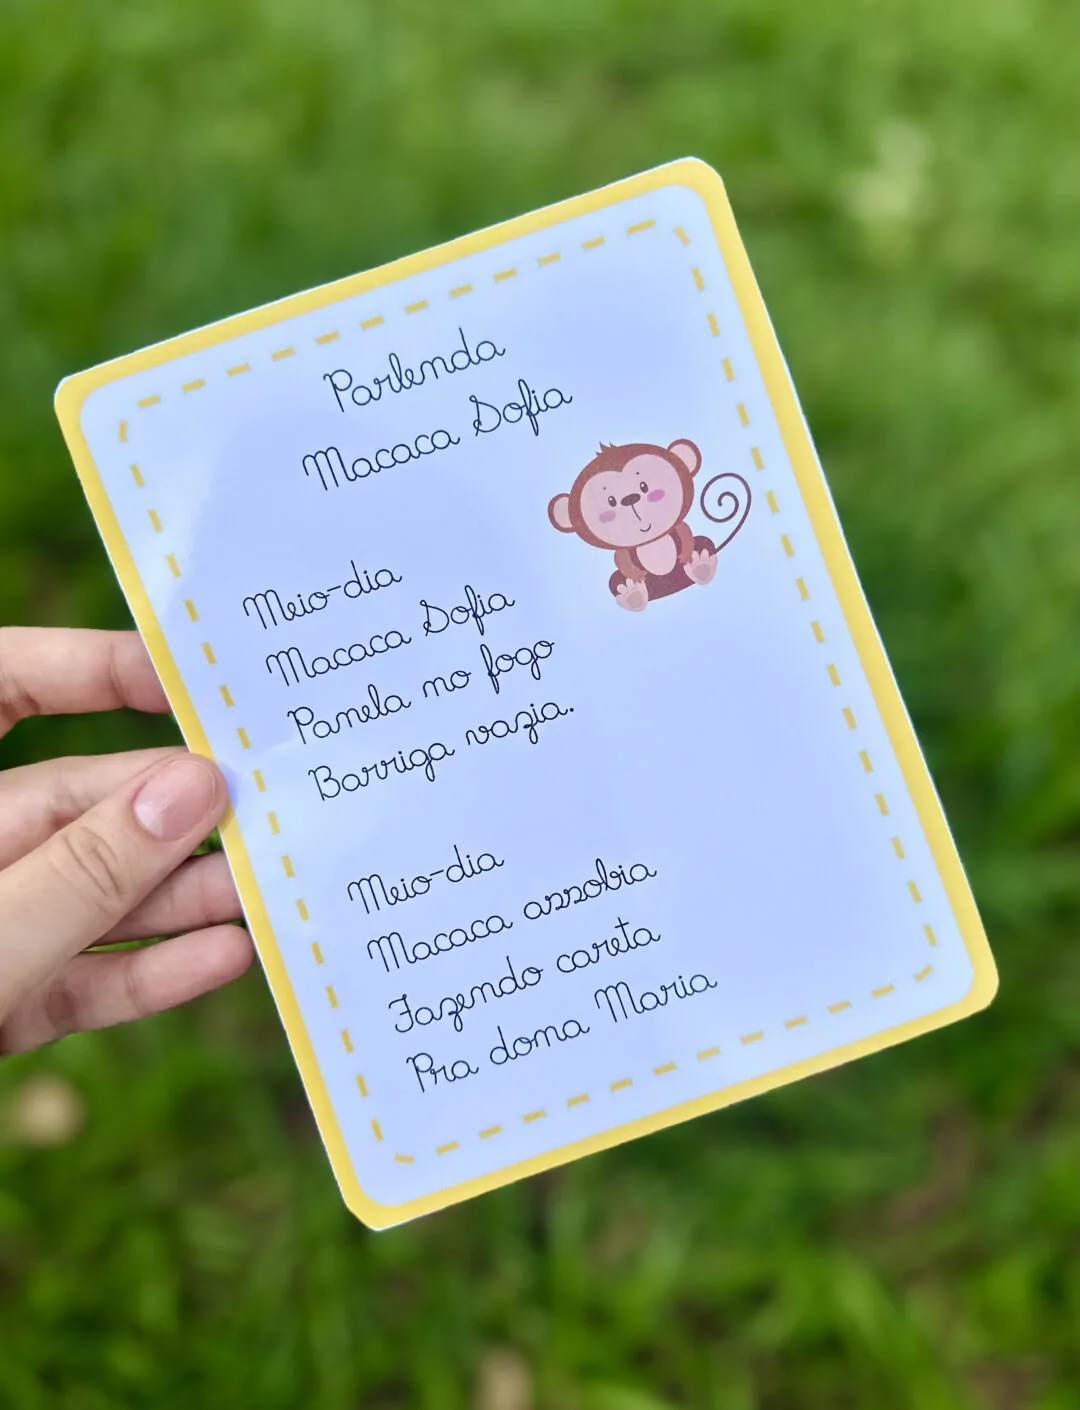 Parlenda
Macaca Sofia
Meio-dia
Macaca Sofia
Panela no fogo
Barriga vazia.
Meio-dia
Macaca assobia
Fazendo careta
Pra dona Maria